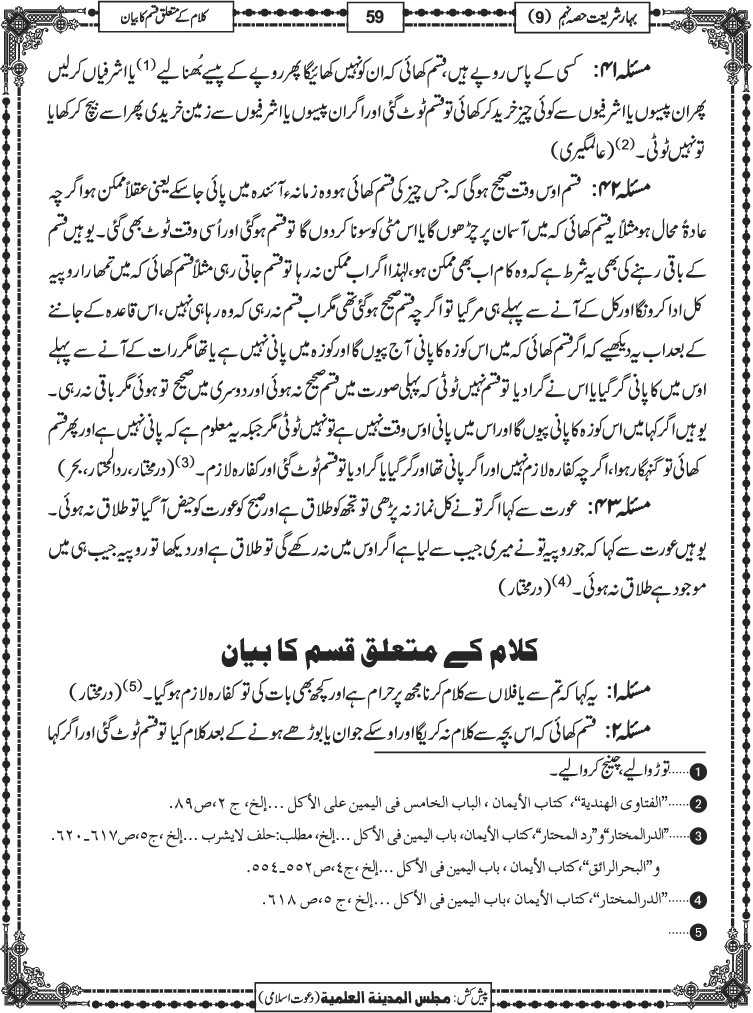 بہار شریعت حصہ نہم (9)
59
کلام کے متعلق قسم کا بیان
مسئلہ ۴۱: کسی کے پاس روپے ہیں، قسم کھائی کہ ان کو نہیں کھائیگا پھر روپے کے پیسے بُھنا لیے(1) یا اشرفیاں کرلیں
پھر ان پیسوں یا اشرفیوں سے کوئی چیز خرید کر کھائی تو قسم ٹوٹ گئی اور اگر ان پیسوں یا اشرفیوں سے زمین خریدی پھر اسے بیچ کر کھایا
تو نہیں ٹوٹی۔(2) (عالمگیری)
مسئلہ ۴۲: قسم اوس وقت صحیح ہوگی کہ جس چیز کی قسم کھائی ہو وہ زمانہ ءآئندہ میں پائی جاسکے یعنی عقلاً ممکن ہو اگرچہ
عادۃً محال ہو مثلاً یہ قسم کھائی کہ میں آسمان پر چڑھوں گا یا اس مٹی کو سونا کردوں گا تو قسم ہوگئی اور اُسی وقت ٹوٹ بھی گئی۔ یوہیں قسم
کے باقی رہنے کی بھی یہ شرط ہے کہ وہ کام اب بھی ممکن ہو، لہٰذا اگر اب ممکن نہ رہا تو قسم جاتی رہی مثلاً قسم کھائی کہ میں تمھارا روپیہ
کل ادا کرونگا اور کل کے آنے سے پہلے ہی مر گیا تو اگرچہ قسم صحیح ہوگئی تھی مگر اب قسم نہ رہی کہ وہ رہا ہی نہیں، اس قاعدہ کے جاننے
کے بعد اب یہ دیکھیے کہ اگر قسم کھائی کہ میں اس کوزہ کا پانی آج پیوں گا اور کوزہ میں پانی نہیں ہے یا تھا مگر رات کے آنے سے پہلے
اوس میں کا پانی گر گیا یا اس نے گرا دیا تو قسم نہیں ٹوٹی کہ پہلی صورت میں قسم صحیح نہ ہوئی اور دوسری میں صحیح تو ہوئی مگر باقی نہ رہی۔
یوہیں اگر کہا میں اس کوزہ کا پانی پیوں گا اور اس میں پانی اوس وقت نہیں ہے تو نہیں ٹوٹی مگر جبکہ یہ معلوم ہے کہ پانی نہیں ہے اور پھر قسم
کھائی تو گنہگار ہوا، اگرچہ کفارہ لازم نہیں اور اگر پانی تھا اور گر گیا یا گرا دیا تو قسم ٹوٹ گئی اور کفارہ لازم۔(3) (درمختار، ردالمحتار، بحر)
مسئلہ ۴۳: عورت سے کہا اگر تونے کل نماز نہ پڑھی تو تجھ کو طلاق ہے اور صبح کو عورت کو حیض آگیا تو طلاق نہ ہوئی۔
یوہیں عورت سے کہا کہ جو روپیہ تونے میری جیب سے لیا ہے اگر اوس میں نہ رکھے گی تو طلاق ہے اور دیکھا تو روپیہ جیب ہی میں
موجود ہے طلاق نہ ہوئی۔(4) (درمختار)
کلام کے متعلق قسم کا بیان
مسئلہ ۱: یہ کہا کہ تم سے یا فلاں سے کلام کرنا مجھ پر حرام ہے اور کچھ بھی بات کی تو کفارہ لازم ہوگیا۔(5) (درمختار)
مسئلہ ۲: قسم کھائی کہ اس بچہ سے کلام نہ کریگا اور اوسکے جوان یا بوڑھے ہونے کے بعد کلام کیا تو قسم ٹوٹ گئی اور اگر کہا
1 ......توڑوالیے، چینج کروالیے۔
2 ......"الفتاوی الھندیة"، کتاب الأیمان ، الباب الخامس فی الیمین علی الأکل ...إلخ، ج ۲،ص۸۹.
3 ......"الدرالمختار"و"رد المحتار"،کتاب الأیمان، باب الیمین فی الأکل ...إلخ، مطلب:حلف لایشرب ...إلخ ،ج۵،ص۶۱۷ـ۶۲۰.
و"البحرالرائق"،کتاب الأیمان ، باب الیمین فی الأکل ...إلخ ،ج٤،ص۵۵۲ـ۵۵٤.
4 ......"الدرالمختار"، کتاب الأیمان ،باب الیمین فی الأکل ...إلخ ،ج ۵،ص ۶۱۸.
5 ......
پیش کش: مجلس المدینة العلمیة (دعوت اسلامی)